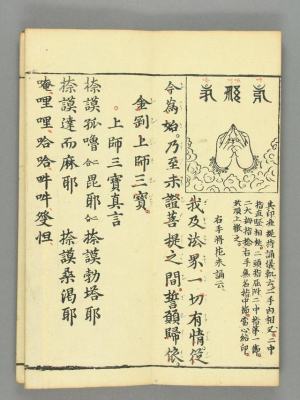 其印准提持誦儀軌云二手內相叉二中
指直竪相拄二頭指屈附二中指第一節
二大拇指捻右手無名指中節當心結印
於頂上散之
右手將花米誦云
我及法界一切有情從
今為始乃至未證菩提之間誓願歸依
金剛上師三寶
上師三寶真言
捺謨孤嚕 毘耶 捺謨勃塔耶
捺謨達而麻耶 捺謨桑渴耶
唵哩哩哈哈吽吽癹怛